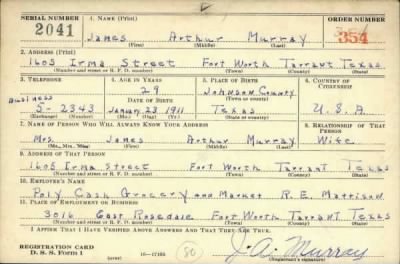 SERIAL NUMBER 1. NAME (Print) ORDER NUMBER
2041 James Arthur Murray 354
(First) (Middle) (Last)
2. ADDRESS (Print)
1605 Irma Street Fort Worth Tarrant Texas
(Number and street or R. F. D. number) (Town) (County) (State)
3. TELEPHONE 4. AGE IN YEARS 5. PLACE OF BIRTH 6. COUNTRY OF CITIZENSHIP
Business 29 Johnson County
DATE OF BIRTH (Town or county)
5-2343 January 23 1911 Texas U.S.A
(Exchange) (Number) (Mo.) (Day) (Yr.) (State or country)
7. NAME OF PERSON WHO WILL ALWAYS KNOW YOUR ADDRESS 8. RELATIONSHIP OF THAT PERSON
Mrs. James Arthur Murray Wife
(Mr., Mrs., Miss) (First) (Middle) (Last)
9. ADDRESS OF THAT PERSON
1605 Irma street Fort Worth Tarrant Texas
(Number and street or R. F. D. number) (Town) (County) (State)
10. EMPLOYER'S NAME
Poly Cash Grocery and Market R. E. Mattison
11. PLACE OF EMPLOYMENT OR BUSINESS
3016 East Rosedale Fort Worth Tarrant Texas
(Number and street or R. F. D. number) (Town) (County) (State)
I AFFIRM THAT I HAVE VERIFIED ABOVE ANSWERS AND THAT THEY ARE TRUE.
REGISTRATION CARD J. A. Murray
D. S. S. Form 1 (over) 16-17105 80 (Registrant's signature)